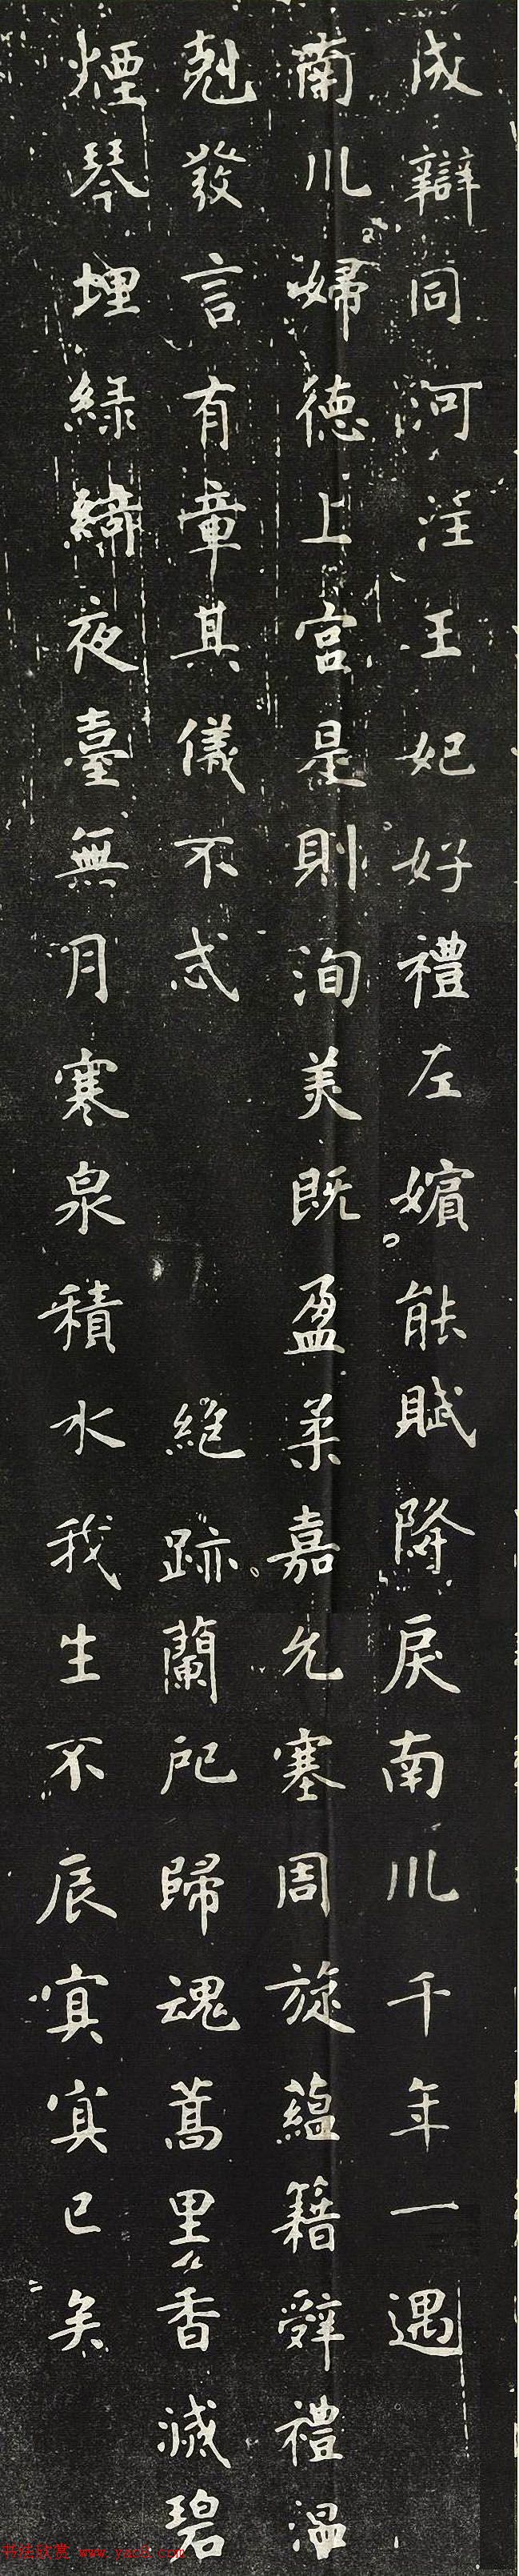 成辯同河淫王妃好禮左嬪能賦降戾南川千年一遇
南川婦德上宮是則洵美既盈柔嘉允塞周旋蘊籍辭禮溫
剋發言有章其儀不忒 絕跡蘭祀歸魂蒿里香滅碧
煙琴埋綠綺夜臺無月寒泉積水我生不辰寘寘已矣
书法欣赏 www.yac8.com